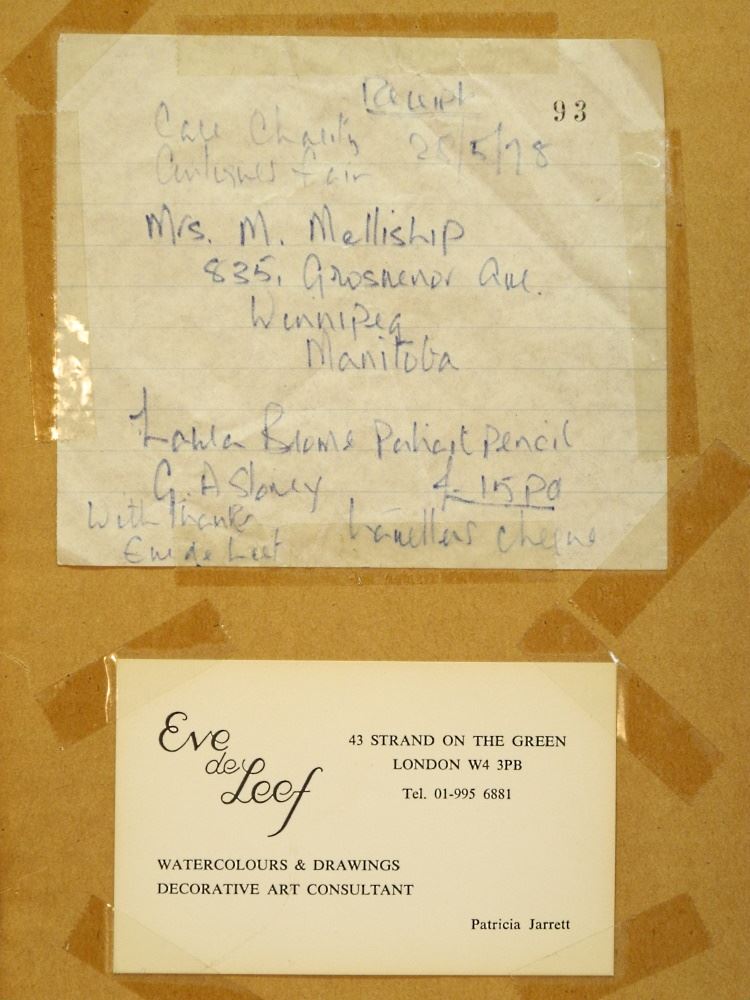 Receipt
93
Care Charity 25/5/78
Antiques Fair
Mrs. M. Melliship
835, Grosvenor Ave.
Winnipeg
Manitoba
Portrait pencil
G. A Storey £15.00
With Thanks
Eve de Leef
travellers cheque
Eve de Leef
43 STRAND ON THE GREEN
LONDON W4 3PB
Tel. 01-995 6881
WATERCOLOURS & DRAWINGS
DECORATIVE ART CONSULTANT
Patricia Jarrett